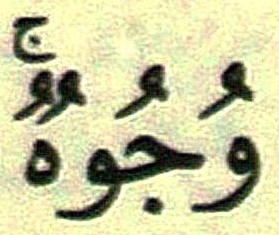 وُجُوهٌ ۚ